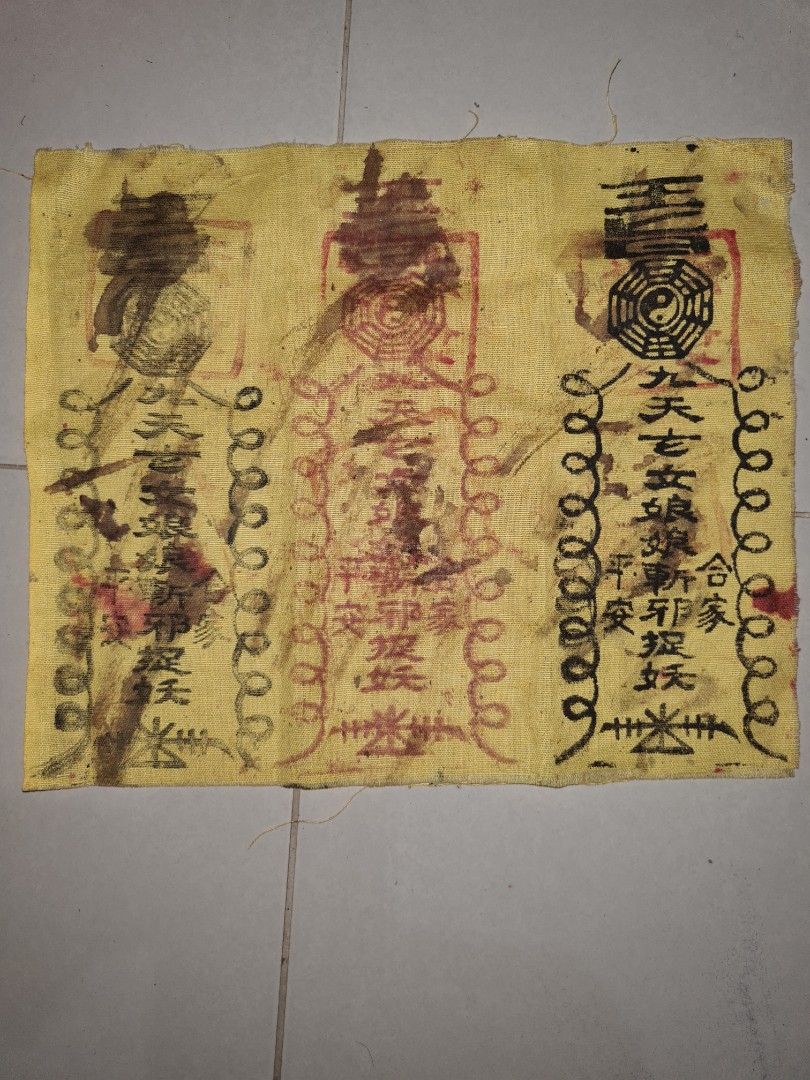 合家
九天玄女娘娘斬邪捉妖
平安
家
天玄女娘斬邪捉妖
平安
家
九天玄女娘娘斬邪捉妖
安